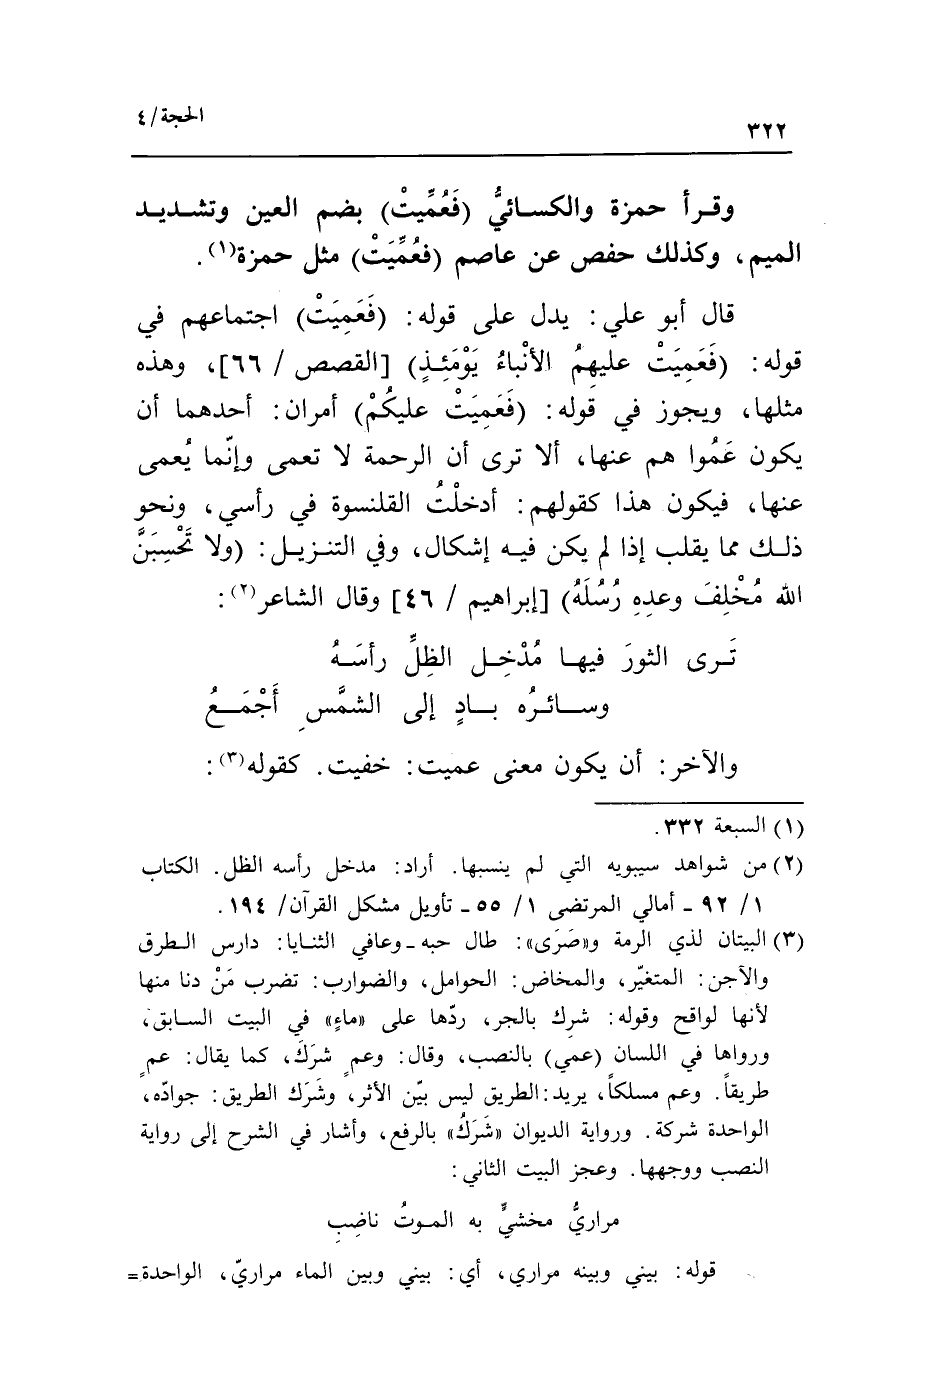 الحجة/ ٤
٣٢٢
وقرأ حمزة والكسائيُّ (فَعُمِّيتْ) بضم العين وتشديد
الميم، وكذلك حفص عن عاصم (فعُمِّيَتْ) مثل حمزة(١).
قال أبو علي: يدل على قوله: (فَعَمِيَتْ) اجتماعهم في
قوله: (فَعَمِيَتْ عليهِمُ الأنْباءُ يَوْمَئِذٍ) [القصص / ٦٦]، وهذه
مثلها، ويجوز في قوله: (فَعَمِيَتْ عليكُمْ) أمران: أحدهما أن
يكون عَمُوا هم عنها، ألا ترى أن الرحمة لا تعمى وإنّما يُعمى
عنها، فيكون هذا كقولهم: أدخلْتُ القلنسوة في رأسي، ونحو
ذلك مما يقلب إذا لم يكن فيه إشكال، وفي التنزيل: (ولا تَحْسِبَنَّ
الله مُخْلِفَ وعدِهِ رُسُلَهُ) [إبراهيم / ٤٦] وقال الشاعر(٢):
تَرى الثورَ فيها مُدْخِل الظِلِّ رأسَهُ
وسائرُه بادٍ إلى الشمَّسِ أَجْمَعُ
والآخر: أن يكون معنى عميت: خفيت. كقوله(٣):
(١) السبعة ٣٣٢.
(٢) من شواهد سيبويه التي لم ينسبها. أراد: مدخل رأسه الظل. الكتاب
١/ ٩٢ ـ أمالي المرتضى ١/ ٥٥ ـ تأويل مشكل القرآن/ ١٩٤.
(٣) البيتان لذي الرمة و«صَرَى»: طال حبه ـ وعافي الثنايا: دارس الطرق
والآجن: المتغيّر، والمخاض: الحوامل، والضوارب: تضرب مَنْ دنا منها
لأنها لواقح وقوله: شركِ بالجر، ردّها على «ماءٍ» في البيت السابق،
ورواها في اللسان (عمي) بالنصب، وقال: وعمٍ شرَكَ، كما يقال: عمٍ
طريقاً. وعم مسلكاً، يريد: الطريق ليس بيّن الأثر، وشَرَك الطريق: جوادّه،
الواحدة شركة. ورواية الديوان «شَرَكُ» بالرفع، وأشار في الشرح إلى رواية
النصب ووجهها. وعجز البيت الثاني:
مراريُّ مخشيٌّ به الموتُ ناضِبِ
قوله: بيني وبينه مراري، أي: بيني وبين الماء مراريّ، الواحدة=